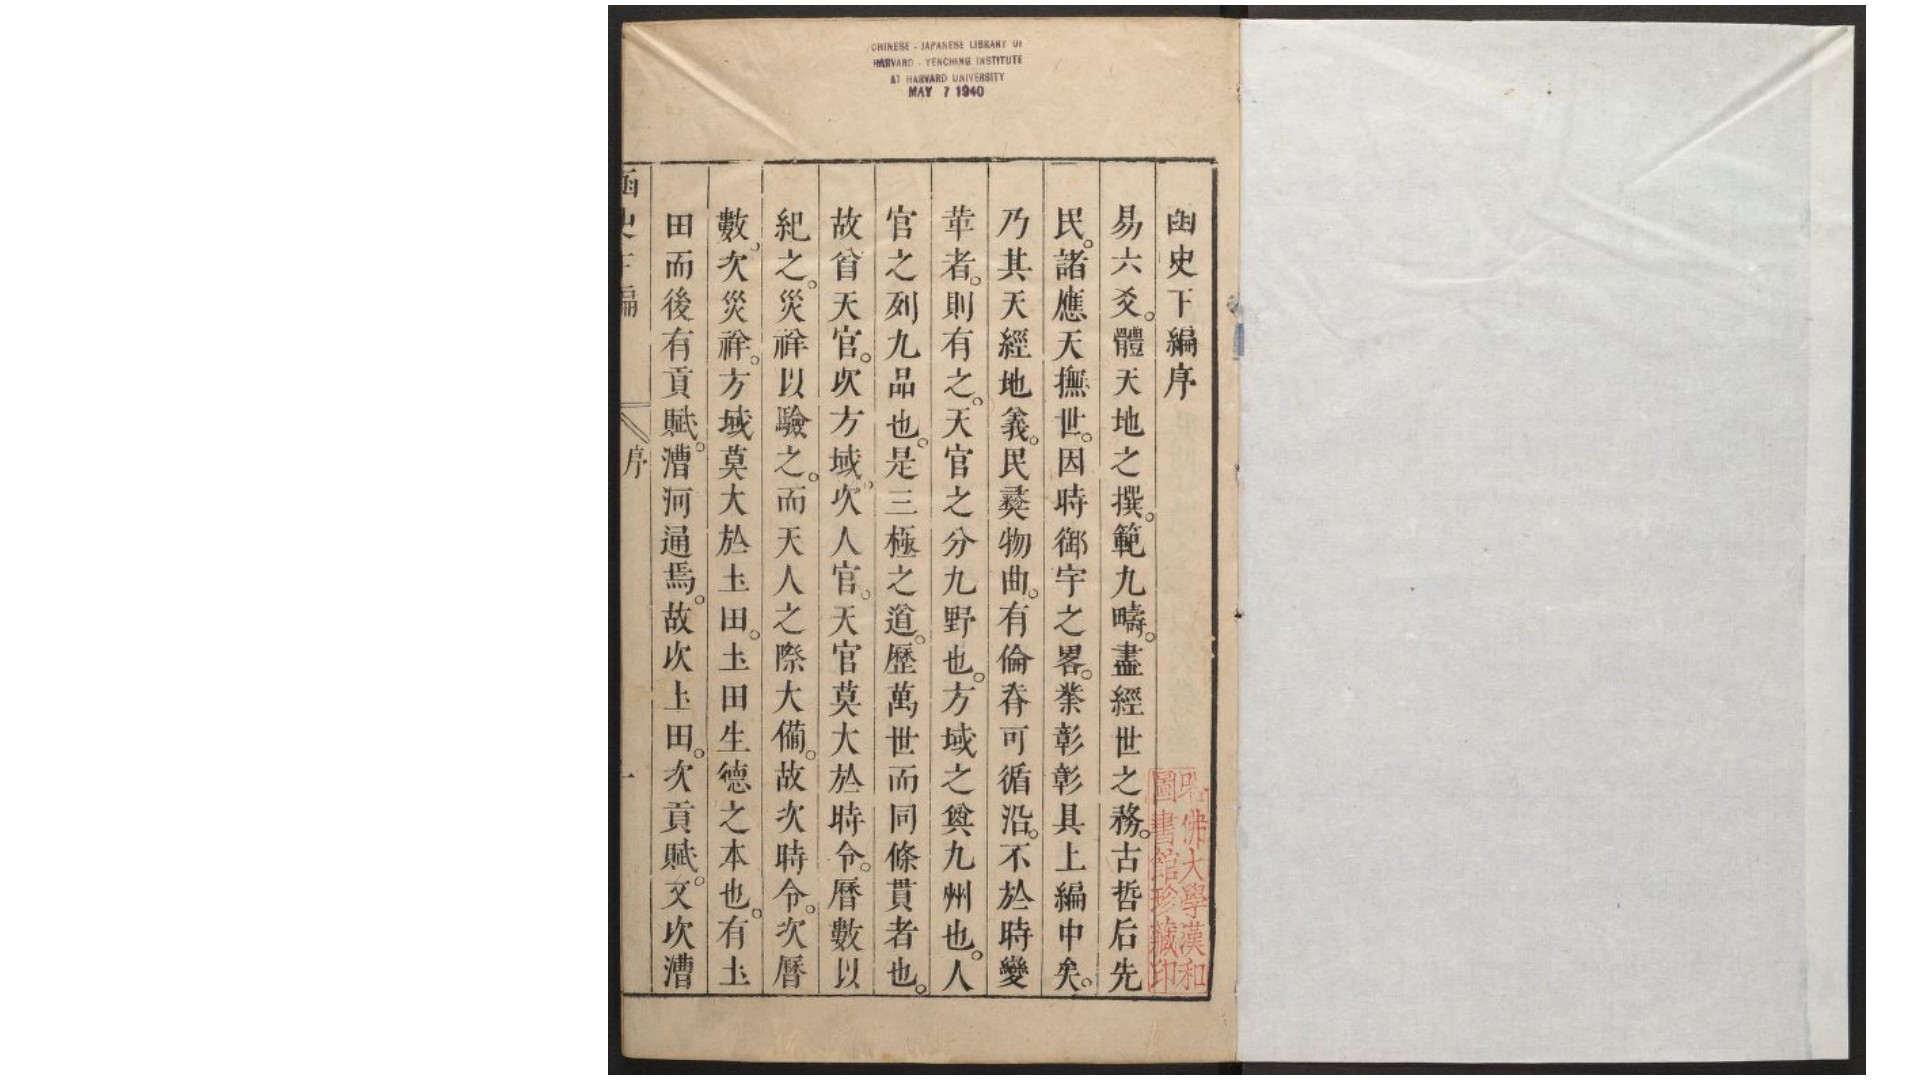 CHINESE - JAPANESE LIBRARY OF
HARVARD - YENCHING INSTITUTE
AT HARVARD UNIVERSITY
MAY 7 1940
函史下編序
易六爻。體天地之撰。範九疇。盡經世之務。古哲后先
民。諸應天撫世。因時御宇之畧。業彰彰具上編中矣。
乃其天經地義。民彝物曲。有倫脊可循沿。不於時變
革者。則有之。天官之分九野也。方域之奠九州也。人
官之列九品也。是三極之道。歷萬世而同條貫者也。
故首天官。次方域。次人官。天官莫大於時令。曆數以
紀之。災祥以驗之。而天人之際大備。故次時令。次曆
數。次災祥。方域莫大於土田。土田生德之本也。有土
田而後有貢賦。漕河通焉。故次土田。次貢賦。又次漕
函史下編
序
一
哈佛大學漢和
圖書館珍藏印